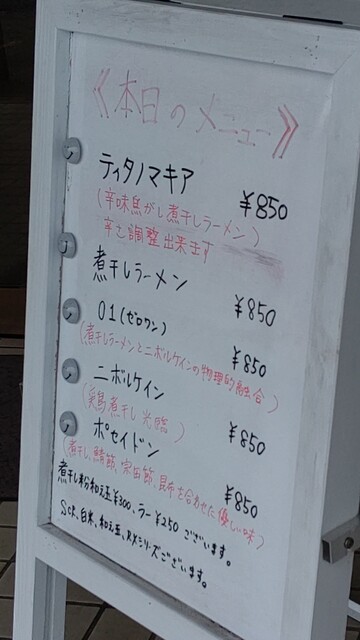 《本日のメニュー》
ティタノマキア ¥850
(辛味焦がし煮干しラーメン)
辛さ調整出来ます
煮干しラーメン ¥850
01(ゼロワン) ¥850
(煮干しラーメンとニボルケインの物理的融合)
ニボルケイン ¥850
(鶏煮干し光臨)
ポセイドン ¥850
(煮干し、鯖節、宗田節、昆布を合わせた優しい味)
煮干し粉和え玉¥300、ラー¥250ございます。
白米、和え玉、RXシリーズございます。